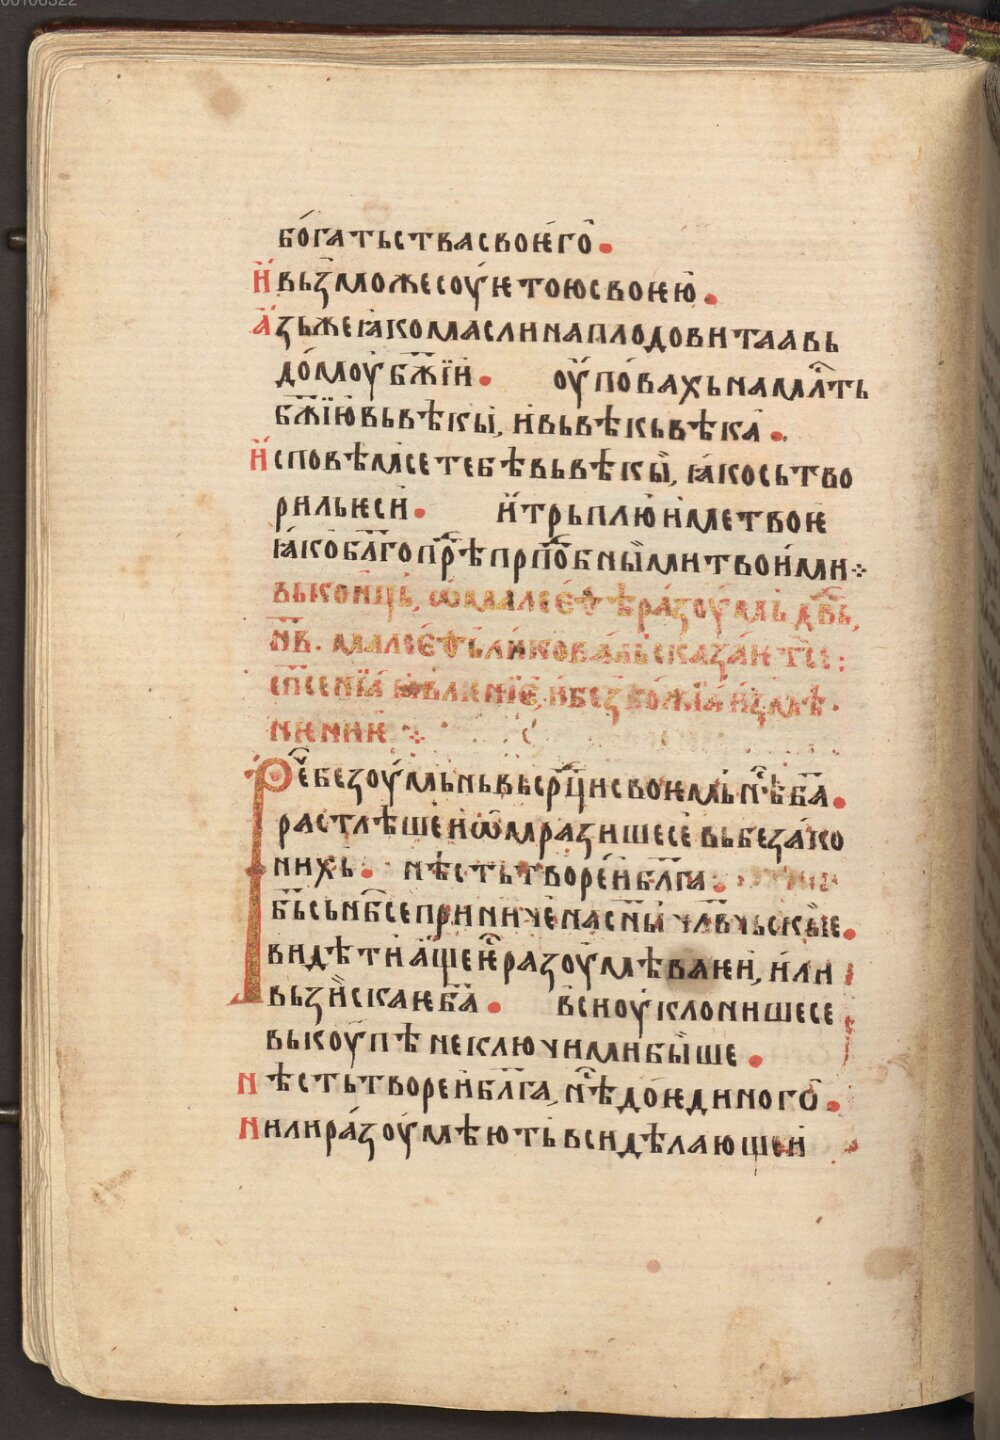 бо́гатьства своѥ́го̑.
И҆ вьꙁможе соу́ѥтою своѥю̀.
А҆ꙁь же ꙗ҆ко маслина плодовитаа вь
до́моу̀ бж҃їи. оу҆пова́хь на мл҃ть
бж҃їю̀ вь вѣкы̀, и҆ вь вѣкь вѣка.
И҆сповѣмсе тебѣ вь вѣкы̀, ꙗ҆ко сьтво
риль ѥси̑. и҆ трьплю̀ и҆ме твоѥ
ꙗ҆ко бл҃го прѣ̑ прпⷣобны̀ми твои́ми ⁘
вь кон́ць, ѿ малеѳ́ѣ ра́ꙁоу́мь дв҃ь,
н҃в. малеѳ́ь ликова́ль скаꙁа́ѥтсе:
сп҃сенїа́ ꙗвлѥнїе̑, и҆ беꙁбожїа́ иꙁмѣ.
нѥниѥ ⁘
Рѐ беꙁоу́мьнь вь срⷣци своѥмь нѣ̑ ба҃.
растлѣше и҆ ѡ҆мраꙁишесе вь беꙁа́ко
нихь. нѣсть творе́и бл҃га.
бь҃ сь нб҃се приниче на сн҃ы чл҃вчьскыѥ.
видѣти а҆ще ѥ̑ раꙁоу́мѣваѥи, и҆ли
вьꙁи̑скаѥ ба҃. вси оу́клонишесе
вькоу́пѣ неключими бы̀ше.
Нѣсть творе́и бл҃га, нѣ̑ до ѥ҆диного̑.
Ни ли ра́ꙁоу́мѣють вси дѣлающеи